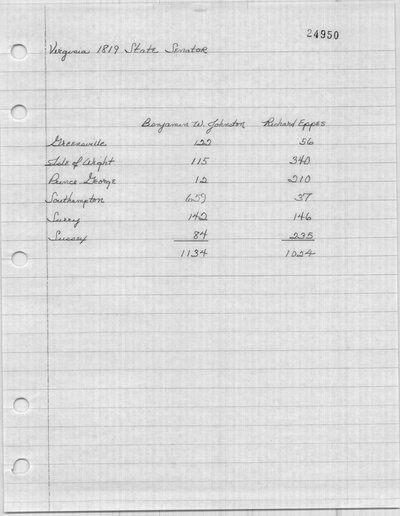 24950
Virginia 1819 State Senator
Benjamin W. Johnston Richard Eppes
Greensville 122 56
Isle of Wight 115 340
Prince George 12 210
Southampton 659 37
Surry 142 146
Sussex 84 235
1134 1024